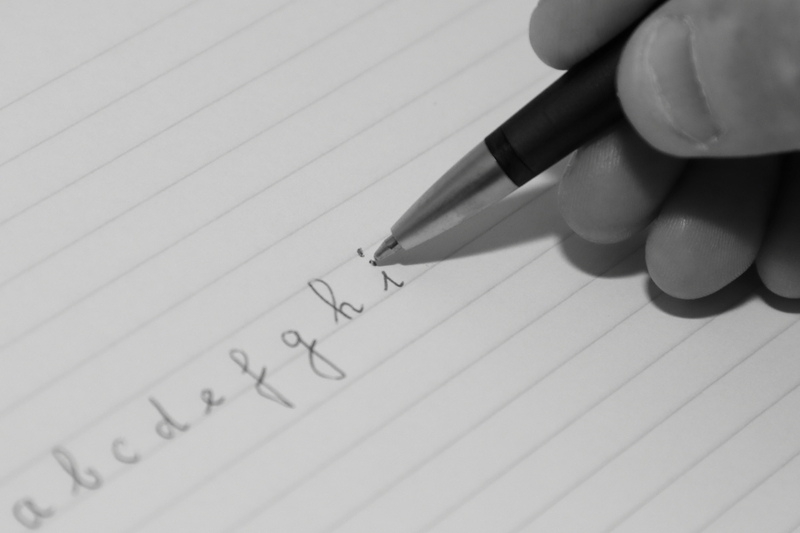 a b c d e f g h i